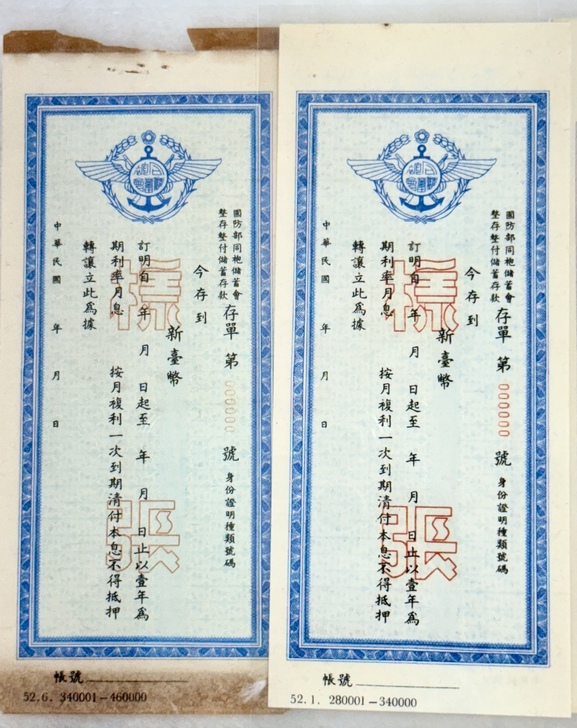 國防部同袍儲蓄會
整存整付儲蓄存款
存單 第 000000 號 身份證明種類號碼
今存到
新臺幣
訂明自 年 月 日起至 年 月 日止以壹年爲
期利率月息 按月複利一次到期清付本息不得抵押
轉讓立此爲據
中華民國 年 月 日
樣張
帳號
52.6. 340001-460000
國防部同袍儲蓄會
整存整付儲蓄存款
存單 第 000000 號 身份證明種類號碼
今存到
新臺幣
訂明自 年 月 日起至 年 月 日止以壹年爲
期利率月息 按月複利一次到期清付本息不得抵押
轉讓立此爲據
中華民國 年 月 日
樣張
帳號
52.1. 280001-340000